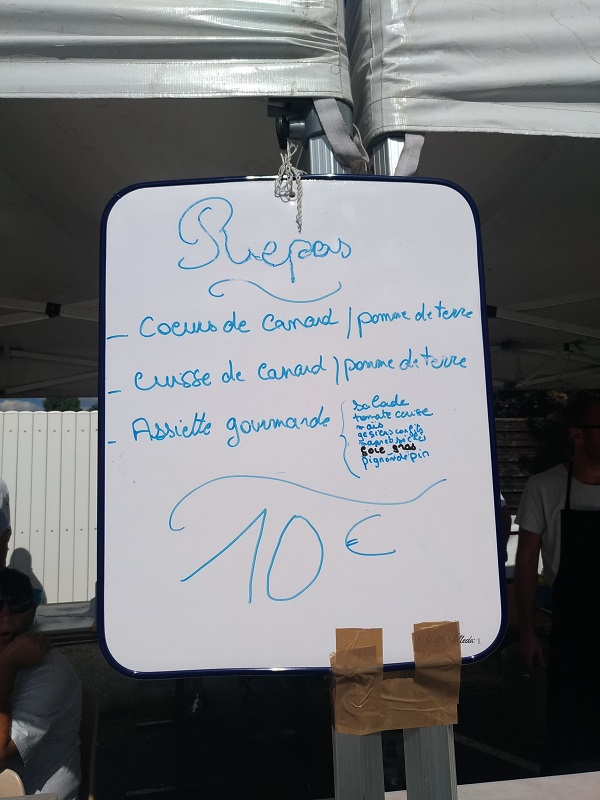 Repas
- Coeurs de Canard / pomme de terre
- Cuisse de Canard / pomme de terre
- Assiette gourmande { salade
tomate cerise
maïs
gésiers confits
magrets séchés
foie gras
pignon de pin
10 €